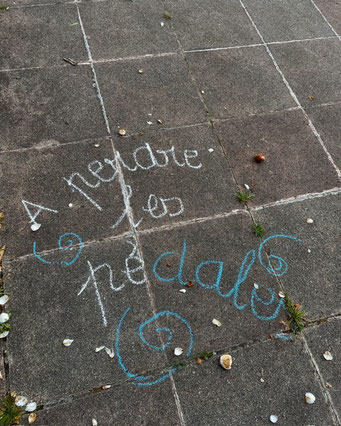 A pendre
les
pédales